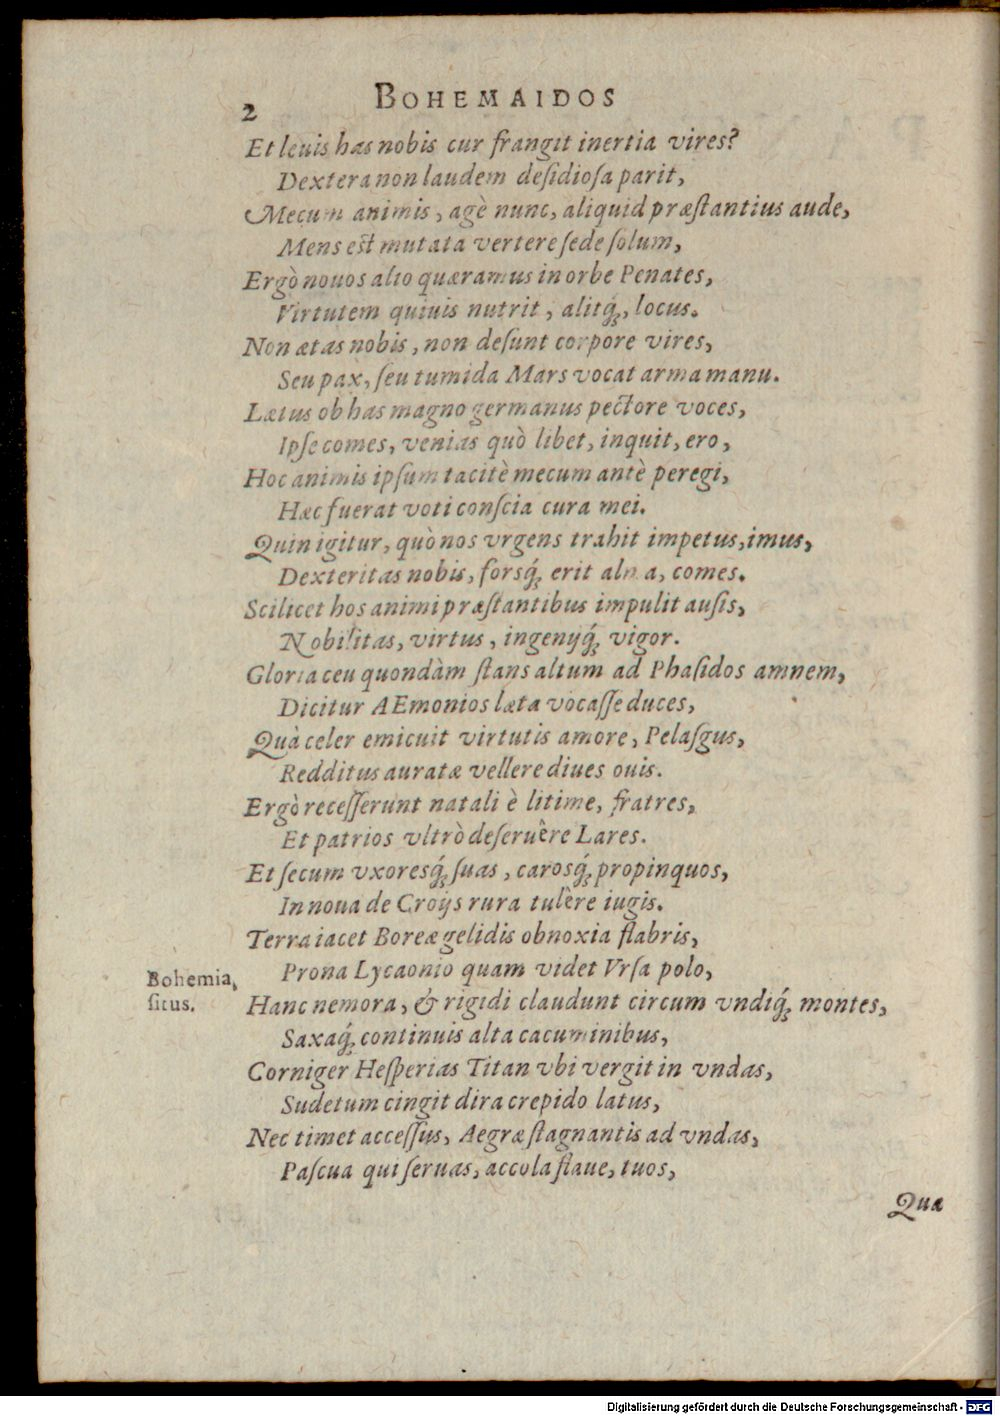 2
BOHEMAIDOS
Et leuis has nobis cur frangit inertia vires?
Dextera non laudem desidiosa parit,
Mecum animis, agè nunc, aliquid præstantius aude,
Mens est mutata vertere sede solum,
Ergò nouos alio quæramus in orbe Penates,
Virtutem quiuis nutrit, alitq́;, locus.
Non ætas nobis, non desunt corpore vires,
Seu pax, seu tumida Mars vocat arma manu.
Lætus ob has magno germanus pectore voces,
Ipse comes, venias quò libet, inquit, ero,
Hoc animis ipsum tacitè mecum antè peregi,
Hæc fuerat voti conscia cura mei.
Quin igitur, quò nos vrgens trahit impetus, imus,
Dexteritas nobis, forsq́; erit alma, comes.
Scilicet hos animi præstantibus impulit ausis,
Nobilitas, virtus, ingenijq́; vigor.
Gloria ceu quondàm stans altum ad Phasidos amnem,
Dicitur AEmonios læta vocasse duces,
Quà celer emicuit virtutis amore, Pelasgus,
Redditus auratæ vellere diues ouis.
Ergò recesserunt natali è litime, fratres,
Et patrios vltrò deseruêre Lares.
Et secum vxoresq́; suas, carosq́; propinquos,
In noua de Croijs rura tulêre iugis.
Terra iacet Boreæ gelidis obnoxia flabris,
Prona Lycaonio quam videt Vrsa polo,
Bohemiæ
situs.
Hanc nemora, & rigidi claudunt circum vndiq́; montes,
Saxaq́; continuis alta cacuminibus,
Corniger Hesperias Titan vbi vergit in vndas,
Sudetum cingit dira crepido latus,
Nec timet accessus, Aegræ stagnantis ad vndas,
Pascua qui seruas, accola flaue, tuos,
Qua
Digitalisierung gefördert durch die Deutsche Forschungsgemeinschaft - DFG